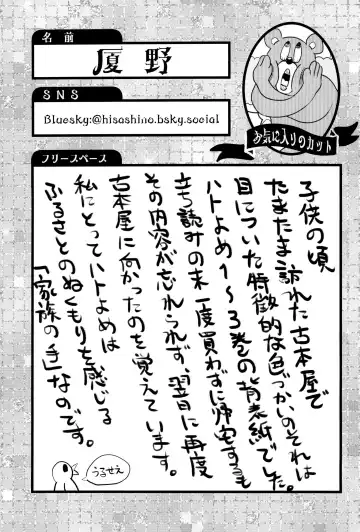 名前
厦野
SNS
Bluesky:@hisashino.bsky.social
お気に入りのカット
フリースペース
子供の頃
たまたま訪れた古本屋で
目についた特徴的な色づかいのそれは
ハトよめ1〜3巻の背表紙でした。
立ち読みの末一度買わずに帰宅するも
その内容が忘れられず、翌日に再度
古本屋に向かったのを覚えています。
私にとってハトよめは
ふるさとのぬくもりを感じる
「家族の手」なのです。
うるせえ